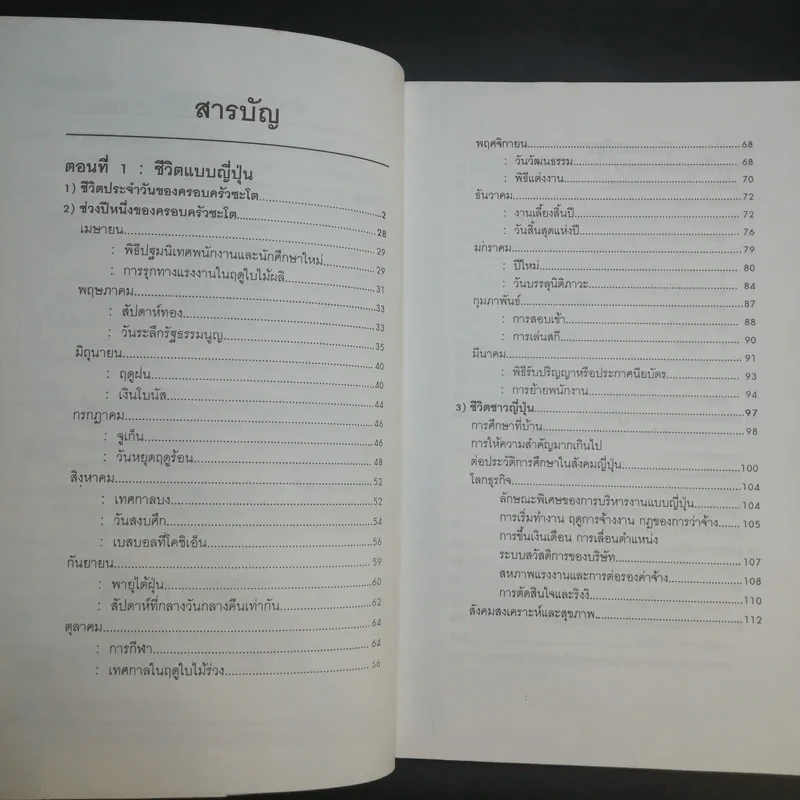 สารบัญ
ตอนที่ 1 : ชีวิตแบบญี่ปุ่น
1) ชีวิตประจำวันของครอบครัวซะโต.....2
2) ช่วงปีหนึ่งของครอบครัวซะโต.....28
เมษายน.....29
: พิธีปฐมนิเทศพนักงานและนักศึกษาใหม่.....29
: การรุกทางแรงงานในฤดูใบไม้ผลิ.....31
พฤษภาคม.....33
: สัปดาห์ทอง.....33
: วันระลึกรัฐธรรมนูญ.....35
มิถุนายน.....40
: ฤดูฝน.....40
: เงินโบนัส.....44
กรกฎาคม.....46
: จูเก็น.....46
: วันหยุดฤดูร้อน.....48
สิงหาคม.....52
: เทศกาลบง.....52
: วันสงบศึก.....54
: เบสบอลที่โคชิเอ็น.....56
กันยายน.....59
: พายุไต้ฝุ่น.....60
: สัปดาห์ที่กลางวันกลางคืนเท่ากัน.....62
ตุลาคม.....64
: การกีฬา.....64
: เทศกาลในฤดูใบไม้ร่วง.....66
พฤศจิกายน.....68
: วันวัฒนธรรม.....68
: พิธีแต่งงาน.....70
ธันวาคม.....72
: งานเลี้ยงสิ้นปี.....72
: วันสิ้นสุดแห่งปี.....76
มกราคม.....79
: ปีใหม่.....80
: วันบรรลุนิติภาวะ.....84
กุมภาพันธ์.....87
: การสอบเข้า.....88
: การเล่นสกี.....90
มีนาคม.....91
: พิธีรับปริญญาหรือประกาศนียบัตร.....93
: การย้ายพนักงาน.....94
3) ชีวิตชาวญี่ปุ่น.....97
การศึกษาที่บ้าน.....98
การให้ความสำคัญมากเกินไป
ต่อประวัติการศึกษาในสังคมญี่ปุ่น.....100
โลกธุรกิจ.....104
ลักษณะพิเศษของการบริหารงานแบบญี่ปุ่น.....104
การเริ่มทำงาน ฤดูการจ้างงาน กฎของการว่าจ้าง.....105
การขึ้นเงินเดือน การเลื่อนตำแหน่ง
ระบบสวัสดิการของบริษัท.....107
สหภาพแรงงานและการต่อรองค่าจ้าง.....108
การตัดสินใจและริงงิ.....110
สังคมสงเคราะห์และสุขภาพ.....112